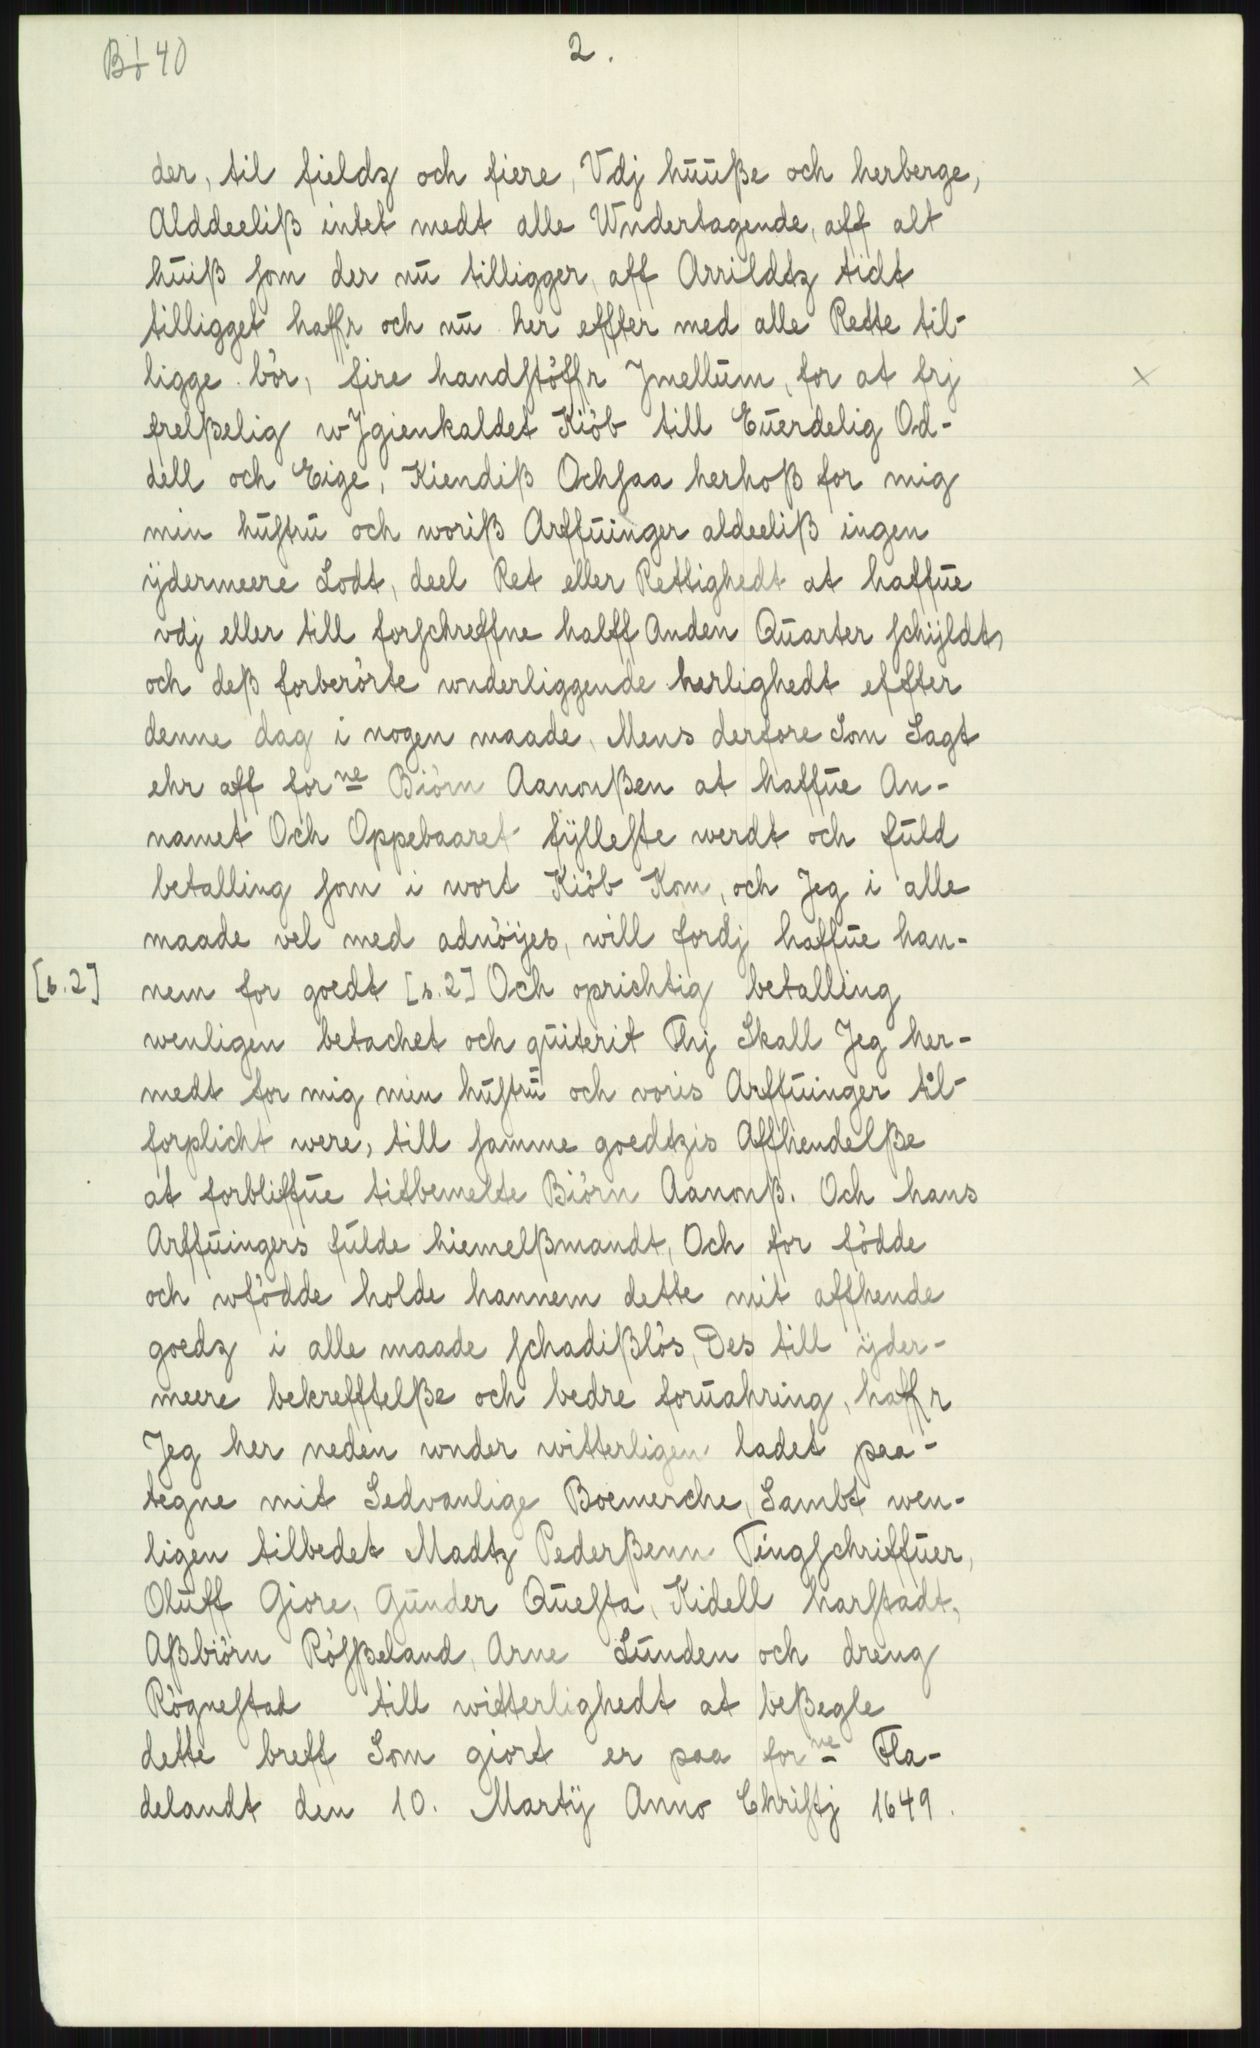 B1 40
2.
der, til fieldz och fiere, Vdj huuße och herberge,
Alddeeliß intet medt alle Wndertagende, aff alt
huiß som der nu tilligger, aff Arrildtz tidt
tilligget haffr och nu her effter med alle Rette til-
ligge bör, fire handstöffr Jmellum, for at frj
frelßelig wJgienkaldet Kiöb till Euerdelig Od-
dell och Eige, Kiendiß Ochsaa herhoß for mig
min hustru och woriß Arffuinger aldeeliß ingen
ÿdermeere Lodt, deel Ret eller Rettighedt at haffue
vdj eller till forschreffne halff Anden Quarter schÿldt,
och deß forberörte wnderliggende herlighedt effter
denne dag i nogen maade, Mens derfore Som Sagt
ehr aff forne Biörn Aanonßen at haffue An-
namet Och Oppebaaret fÿlleste werdt och fuld
betalling som i wort Kiöb Kom, och Jeg i alle
maade vel med adnöÿes, will fordj haffue han-
[s.2] nem for goedt [s.2] Och oprichtig betalling
wenligen betachet och quiterit Thj Skall Jeg her-
medt for mig min hustru och voris Arffuinger til-
forplicht were, till samme goedtzis Affhendelße
at forbliffue titbemelte Biörn Aanonß. Och hans
Arffuingers fulde hiemelßmandt, Och for födde
och wfödde holde hannem dette mit affhende
goedz i alle maade schadißlös, Des till ÿder-
meere bekrefftelße och bedre foruahring, haffr
Jeg her neden wnder witterligen ladet paa-
tegne mit Sedvanlige Boemerche, Sambt wen-
ligen tilbedet Madtz Pederßenn Tingschriffuer,
Oluff Giore, Gunder Questa, Kidell harstadt,
Aßbiörn Rösßeland, Arne Lunden och dreng
Rögnestad till witterlighedt at beßegle
dette breff Som giort er paa forne Fla-
delandt den 10. Martÿ Anno Christj 1649.